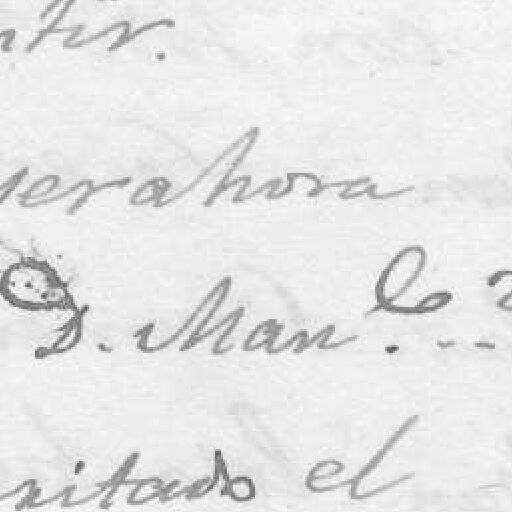 ntir.
yer ahora
D. Man.lo 2
sitado el